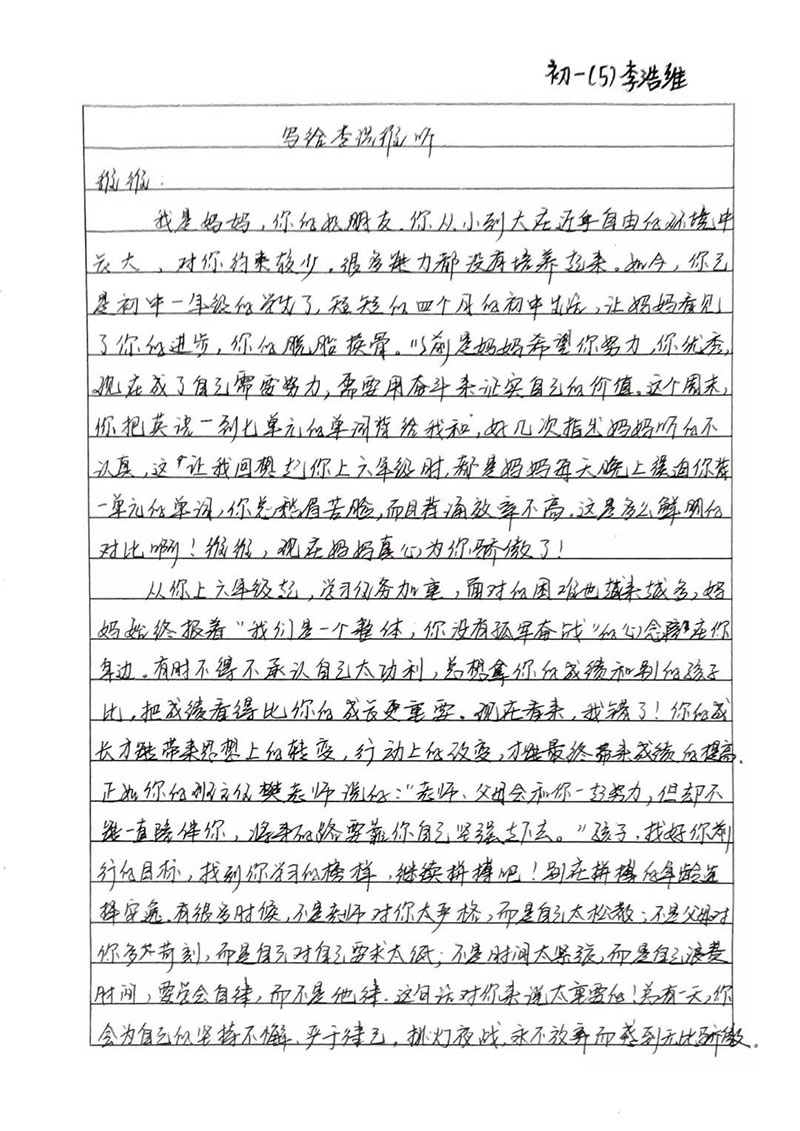 初一(5)李浩维
写给李浩维听
维维:
我是妈妈,你的好朋友.你从小到大在近乎自由的环境中
长大,对你约束较少。很多能力都没有培养起来。如今,你已
是初中一年级的学生了,短短的四个月的初中生活,让妈妈看见
了你的进步,你的脱胎换骨。以前是妈妈希望你努力,你优秀,
现在成了自己需要努力,需要用奋斗来证实自己的价值。这个周末,
你把英语一到七单元的单词背给我和,好几次指出妈妈听的不
认真,这让我回想起你上六年级时,都是妈妈每天晚上强迫你背
一单元的单词,你总愁眉苦脸,而且背诵效率不高。这是多么鲜明的
对比啊!维维,现在妈妈真心为你骄傲了!
从你上六年级起,学习任务加重,面对的困难也越来越多,妈
妈始终报着"我们是一个整体,你没有孤军奋战"的心念陪在你
身边。有时不得不承认自己太功利,总想拿你的成绩和别的孩子
比,把成绩看得比你的成长更重要。现在看来,我错了!你的成
长才能带来思想上的转变,行动上的改变,才能最终带来成绩的提高.
正如你的班主任樊老师说的:"老师、父母会和你一起努力,但却不
能一直陪伴你,将来的路要靠你自己坚强走下去。"孩子,找好你前
行的目标,找到你学习的榜样,继续拼搏吧!别在拼搏的年龄选
择安逸.有很多时候,不是老师对你太严格,而是自己太松散;不是父母对
你多么苛刻,而是自己对自己要求太低;不是时间太紧张,而是自己浪费
时间,要学会自律,而不是他律.这句话对你来说太重要的!总有一天,你
会为自己的坚持不懈、严于律己,挑灯夜战,永不放弃而感到无比骄傲.